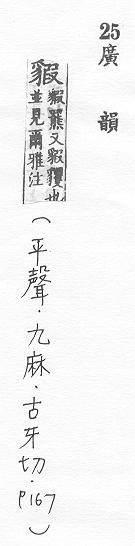 25 廣韻
貑 貑羆又貑玃也
並見爾雅注
（平聲·九麻·古牙切·P167）